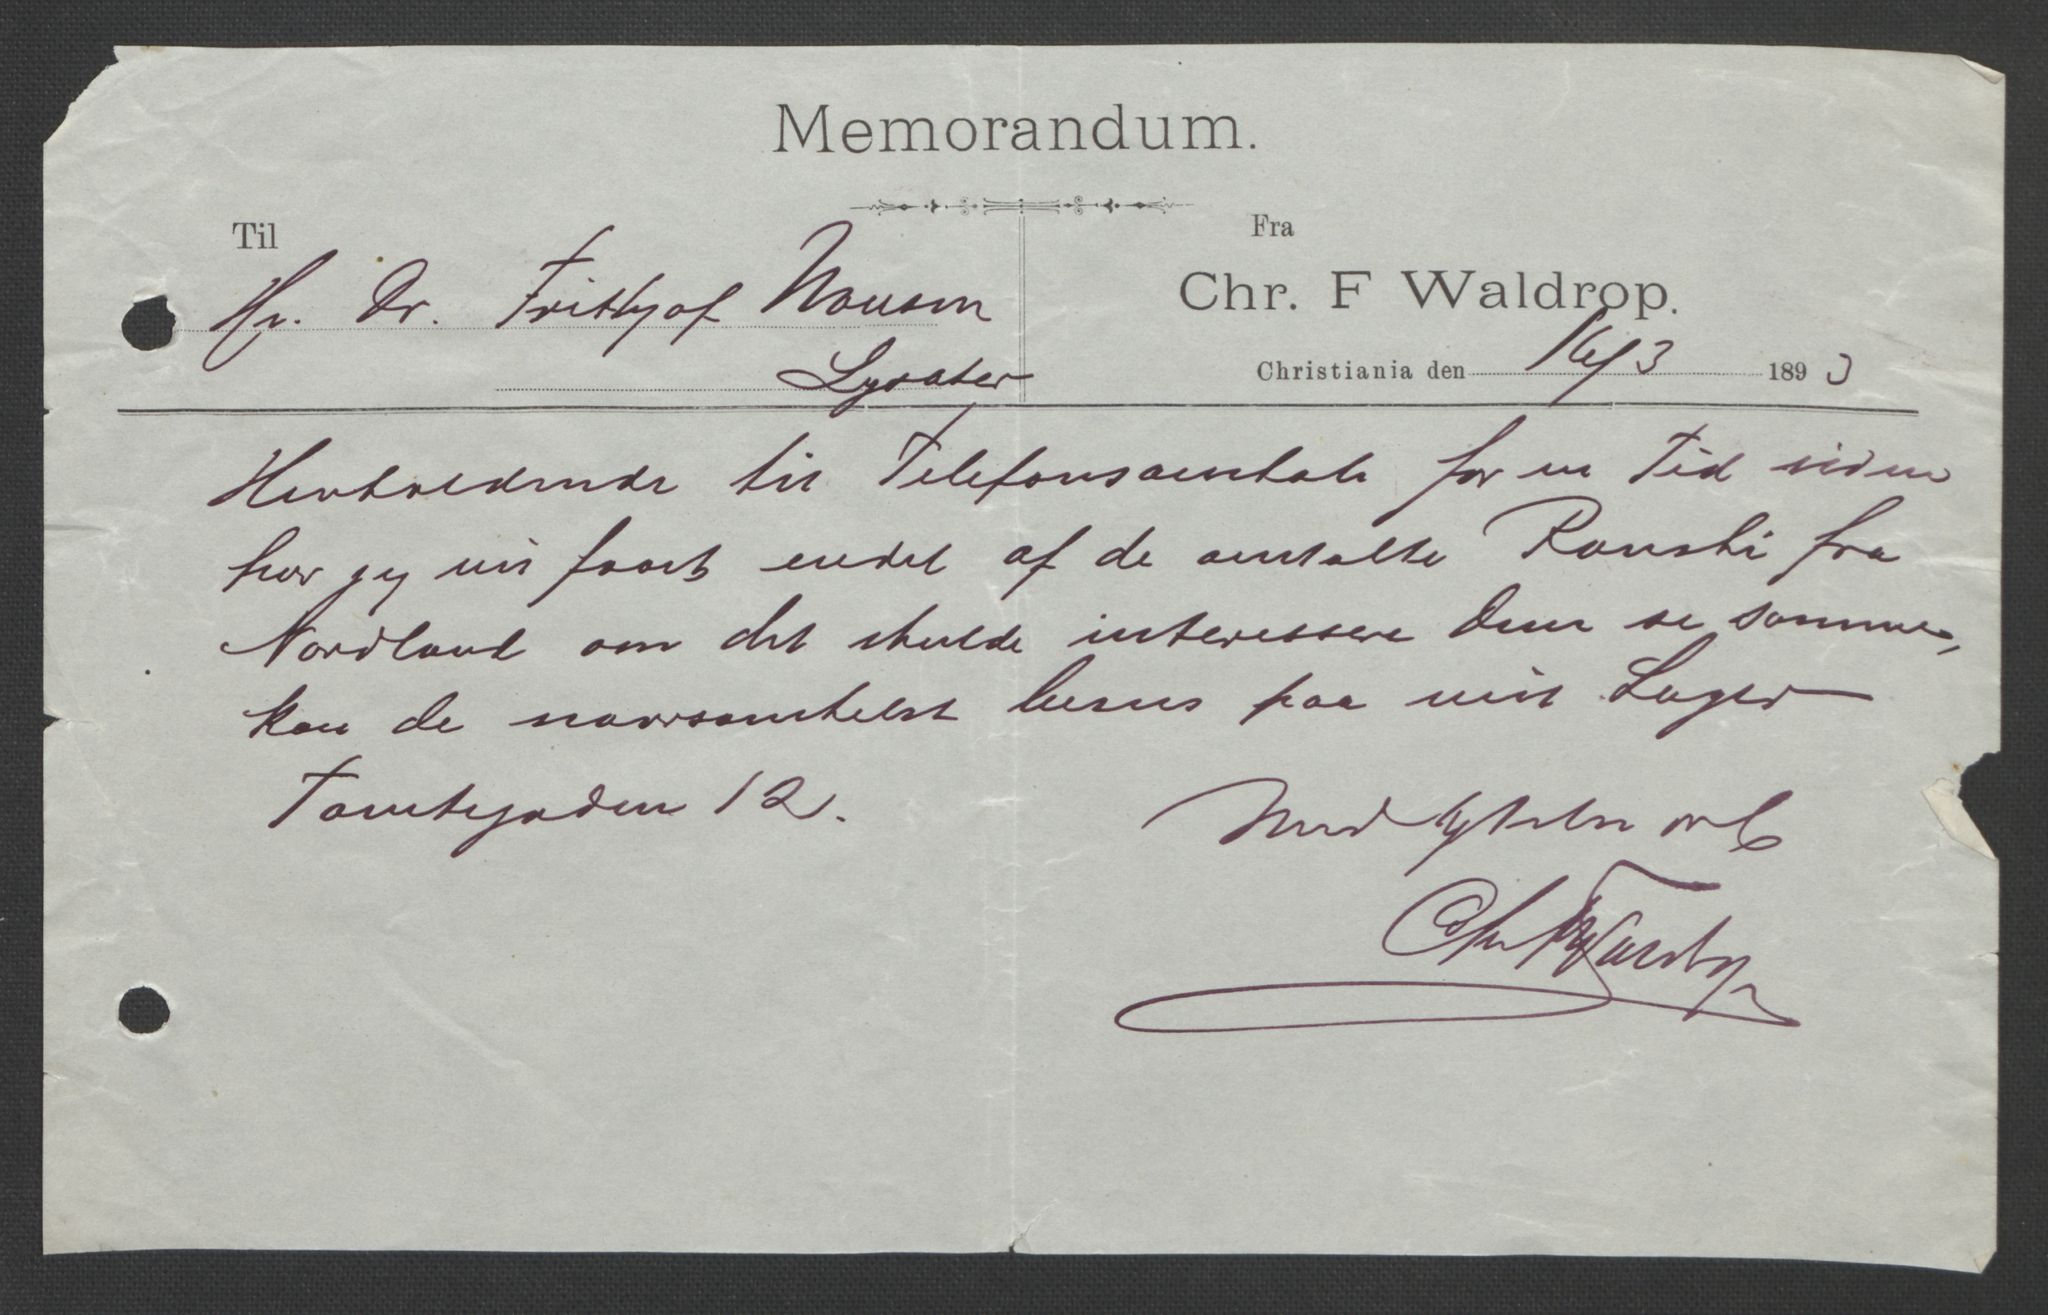 Memorandum.
Til
Hr. Dr. Frithjof Nansen
Lysaker
Fra
Chr. F Waldrop.
Christiania den 16/3 1893
Henholdende til Telefonsamtale for en Tid siden
har jeg nu faaet endel af de omtalte Komshi fra
Nordland om det skulde interessere Dem se samme,
kan de naarsomhelst beses paa mit Lager
Tomtegaden 12.
Med Agtelse
Chr F Waldrop